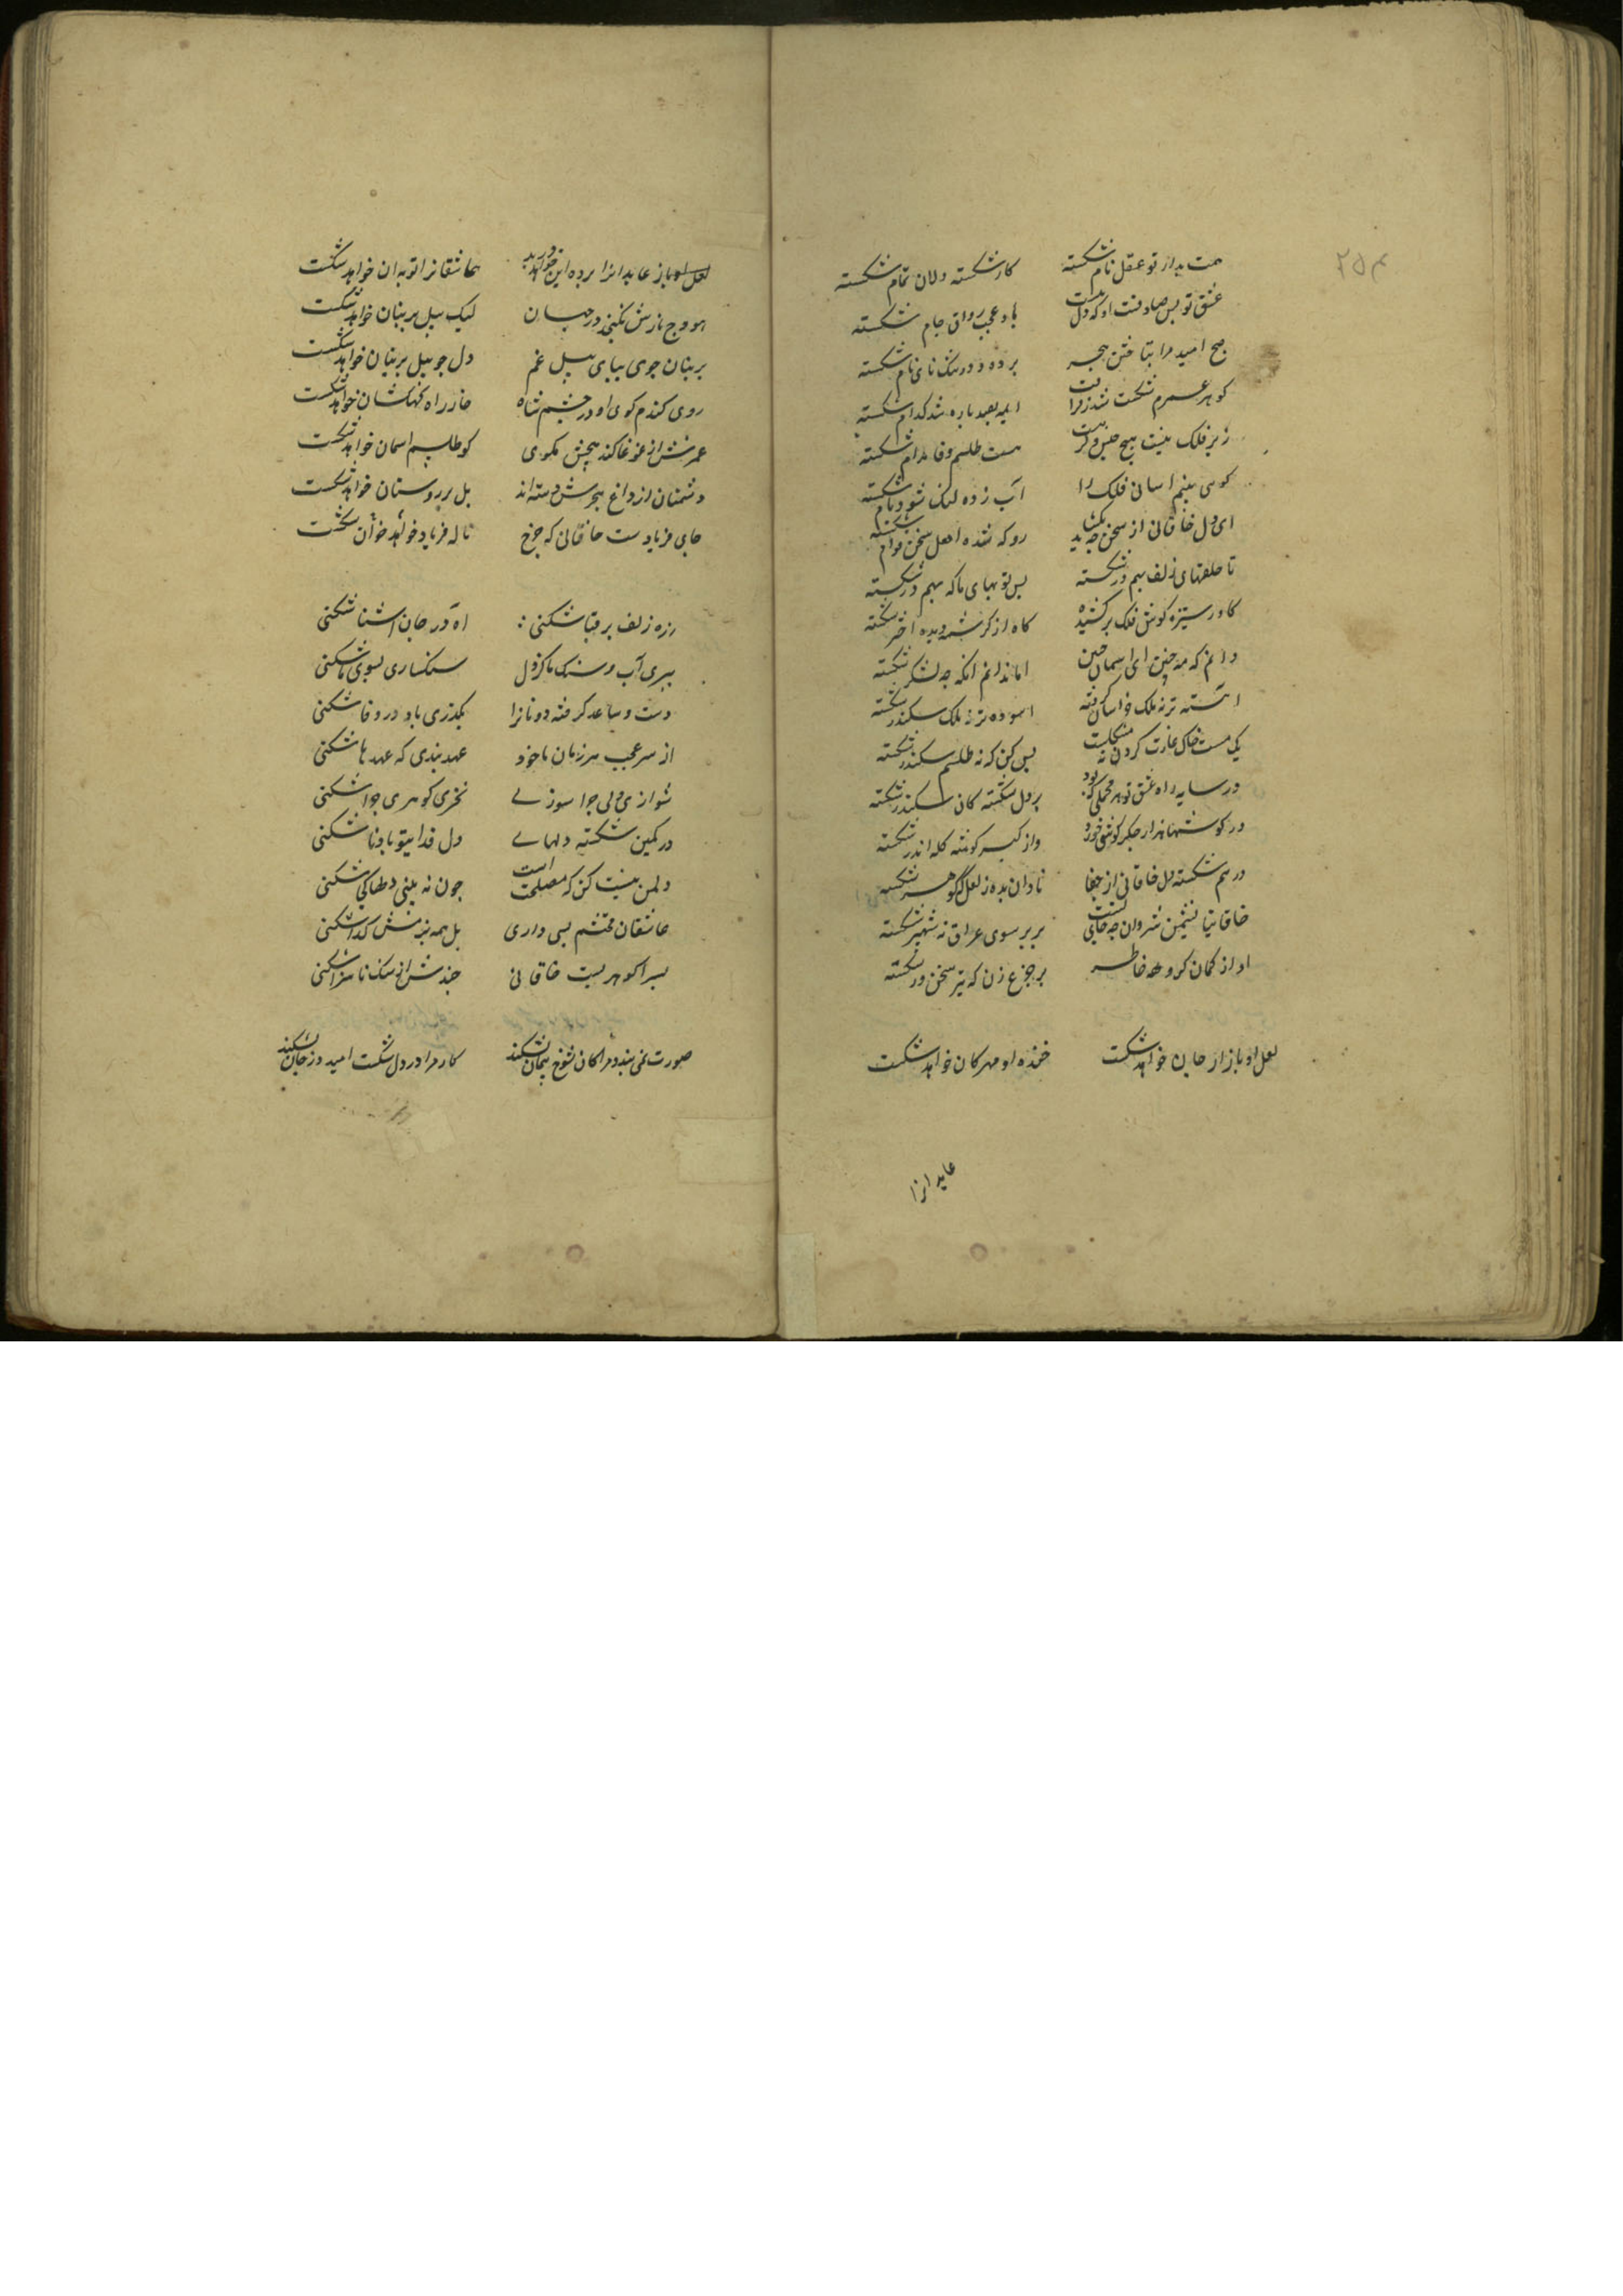 ۲۵۴
هست بدار تو عقل نام شکسته کار شکسته دلان تمام شکسته
عشق تو بس صادقست او که دل باد عجب رواق جام شکسته
صبح امید مرا بتاختن هجر برده و در تنگنای نام شکسته
کوهر عمرم شکست شد ز فراقت ابله بعید باره شد کدام شکسته
زیر فلک نیست هیچ جنس و کر هست هست طلسم وفا مدام شکسته
کوس بینم اسانی فلک را آب زده لیک شود نام شکسته
ای دل خاقانی از سخن چه کشاید رو که نشد اهل سخن دوام شکسته
تا حلقهای زلف بهم در شکسته بس توبهای ما که بهم در شکسته
کاه از ستیزه کوش فلک بر کشیده کاه از کرشمه دیده اختر شکسته
دانم که مه جبینی ای اسمان جبین اما ندانم انکه چه لشکر شکسته
اهسته تر نه ملک خراسان کرفته اسوده تر نه ملک سکندر شکسته
یک مشت خاک غارت کردن نه مشکلیست بس کن که نه طلسم سکندر شکسته
در سایه راه عشق تو هر محملی که بود بر دل شکسته کان سکندر شکسته
در کوشها هزار جکر کوشه خورد واز کبر کوشه کله اندر شکسته
درهم شکسته دل خاقانی از جفا تاوان بده ز لعل که کوهر شکسته
خاقانیا نشیمن شروان نه جای تست بر پر سوی عراق نه شهپر شکسته
او از کمان کروهه خاطر بر چرخ زن که تیر سخن در شکسته
لعل او بازار جان خواهد شکست خنده او مهر کان خواهد شکست
عابدانرا
عابدانرا برده این خواهد درید عاشقانرا توبه ان خواهد شکست
هودج نازش نکنجد در جهان لیک بیل بر بنان خواهد شکست
بر بنان جوی بیای بیل غم دل جو بیل بر بنان خواهد شکست
روی کندم کوی او در چشم شاه خار راه کهکشان خواهد شکست
عمرش از غوغا کند هیچش مکوی کو طلسم اسمان خواهد شکست
دشمنان از داغ هجرش رسته اند بل بر دوستان خواهد شکست
جای فریادست خاقانی که چرخ ناله فریاد خواهد خوان شکست
زره زلف بر قبا شکنی اه در جان اشنا شکنی
ببری آب و سنک ما کز دل سنکساری بسوی ما شکنی
دست و ساعد کرفته دونانرا بکذری باد در وفا شکنی
از سر عجب هر زمان با خود عهد بندی که عهد ها شکنی
شو از ی دلی چرا سوزی نخری کوهری چرا شکنی
در کمین شکسته دلهایی دل فدای تو باد تا شکنی
دلمن نیست کن که مصلحت است چون نه بینی دمطاکی شکنی
عاشقان محتشم بسی داری بل همه نیز منش کدا شکنی
بسرا کوهریست خاقانی چند شراز سنک ناسزا شکنی
صورت نمی بندد مرا کان شوخ پیمان نشکند کار مرا در دل شکست امید در جان نشکند